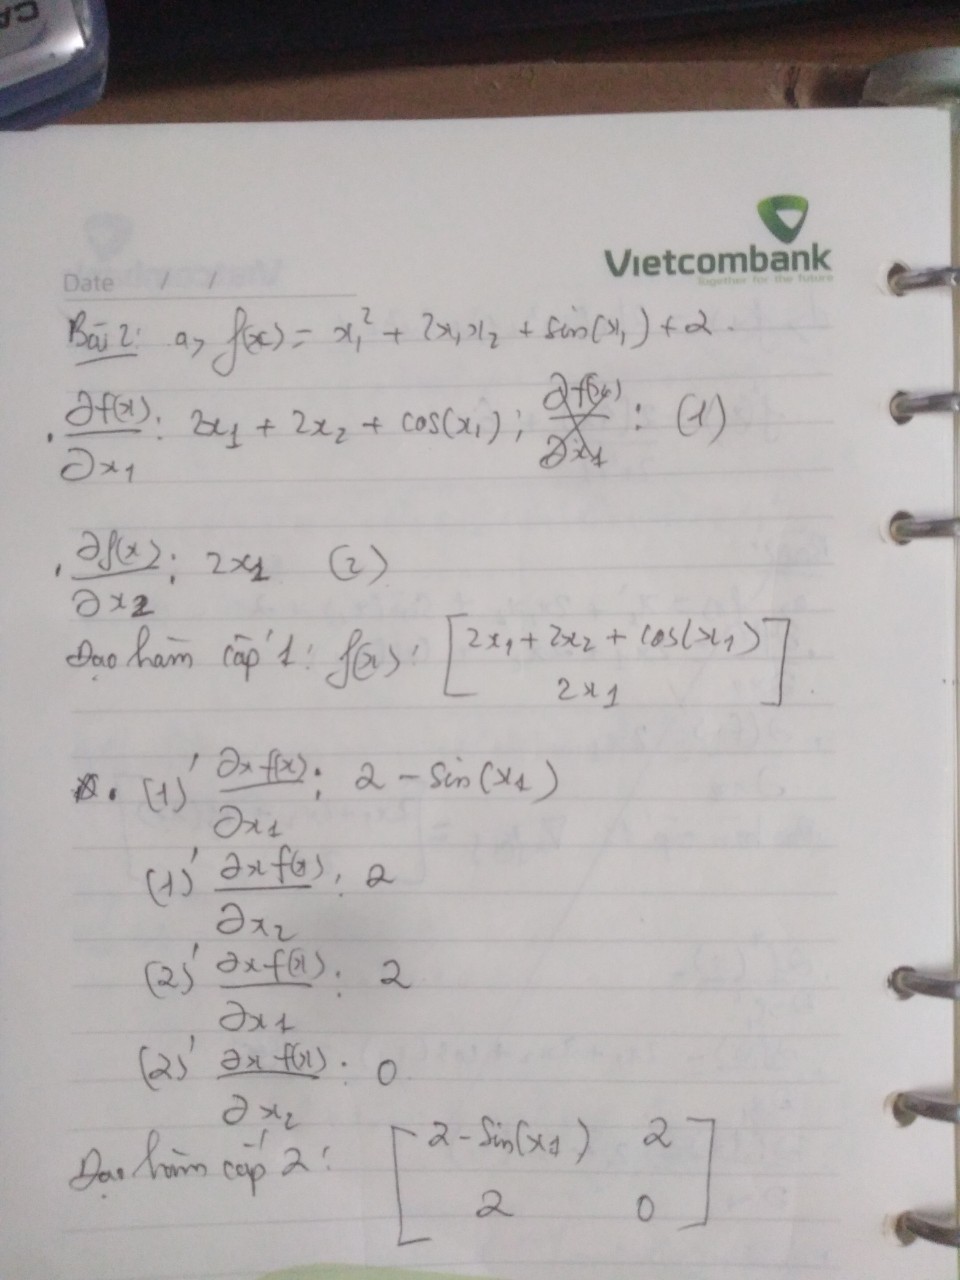 CA
Vietcombank
Together for the future
Date / /
Bài 2: a, f(x) = x₁² + 2x₁x₂ + sin(x₁) + 2.
. ∂f(x)/∂x₁ : 2x₁ + 2x₂ + cos(x₁) ; ∂f(x)/∂x₁ : (1)
. ∂f(x)/∂x₂ : 2x₁ (2)
Đạo hàm cấp 1 : f(x) : [2x₁ + 2x₂ + cos(x₁)
2x₁].
. (1)' ∂xf(x)/∂x₁ : 2 - sin(x₁)
(1)' ∂xf(x)/∂x₂ : 2
(2)' ∂xf(x)/∂x₁ : 2
(2)' ∂xf(x)/∂x₂ : 0
Đạo hàm cấp 2 : [2 - sin(x₁) 2
2 0]